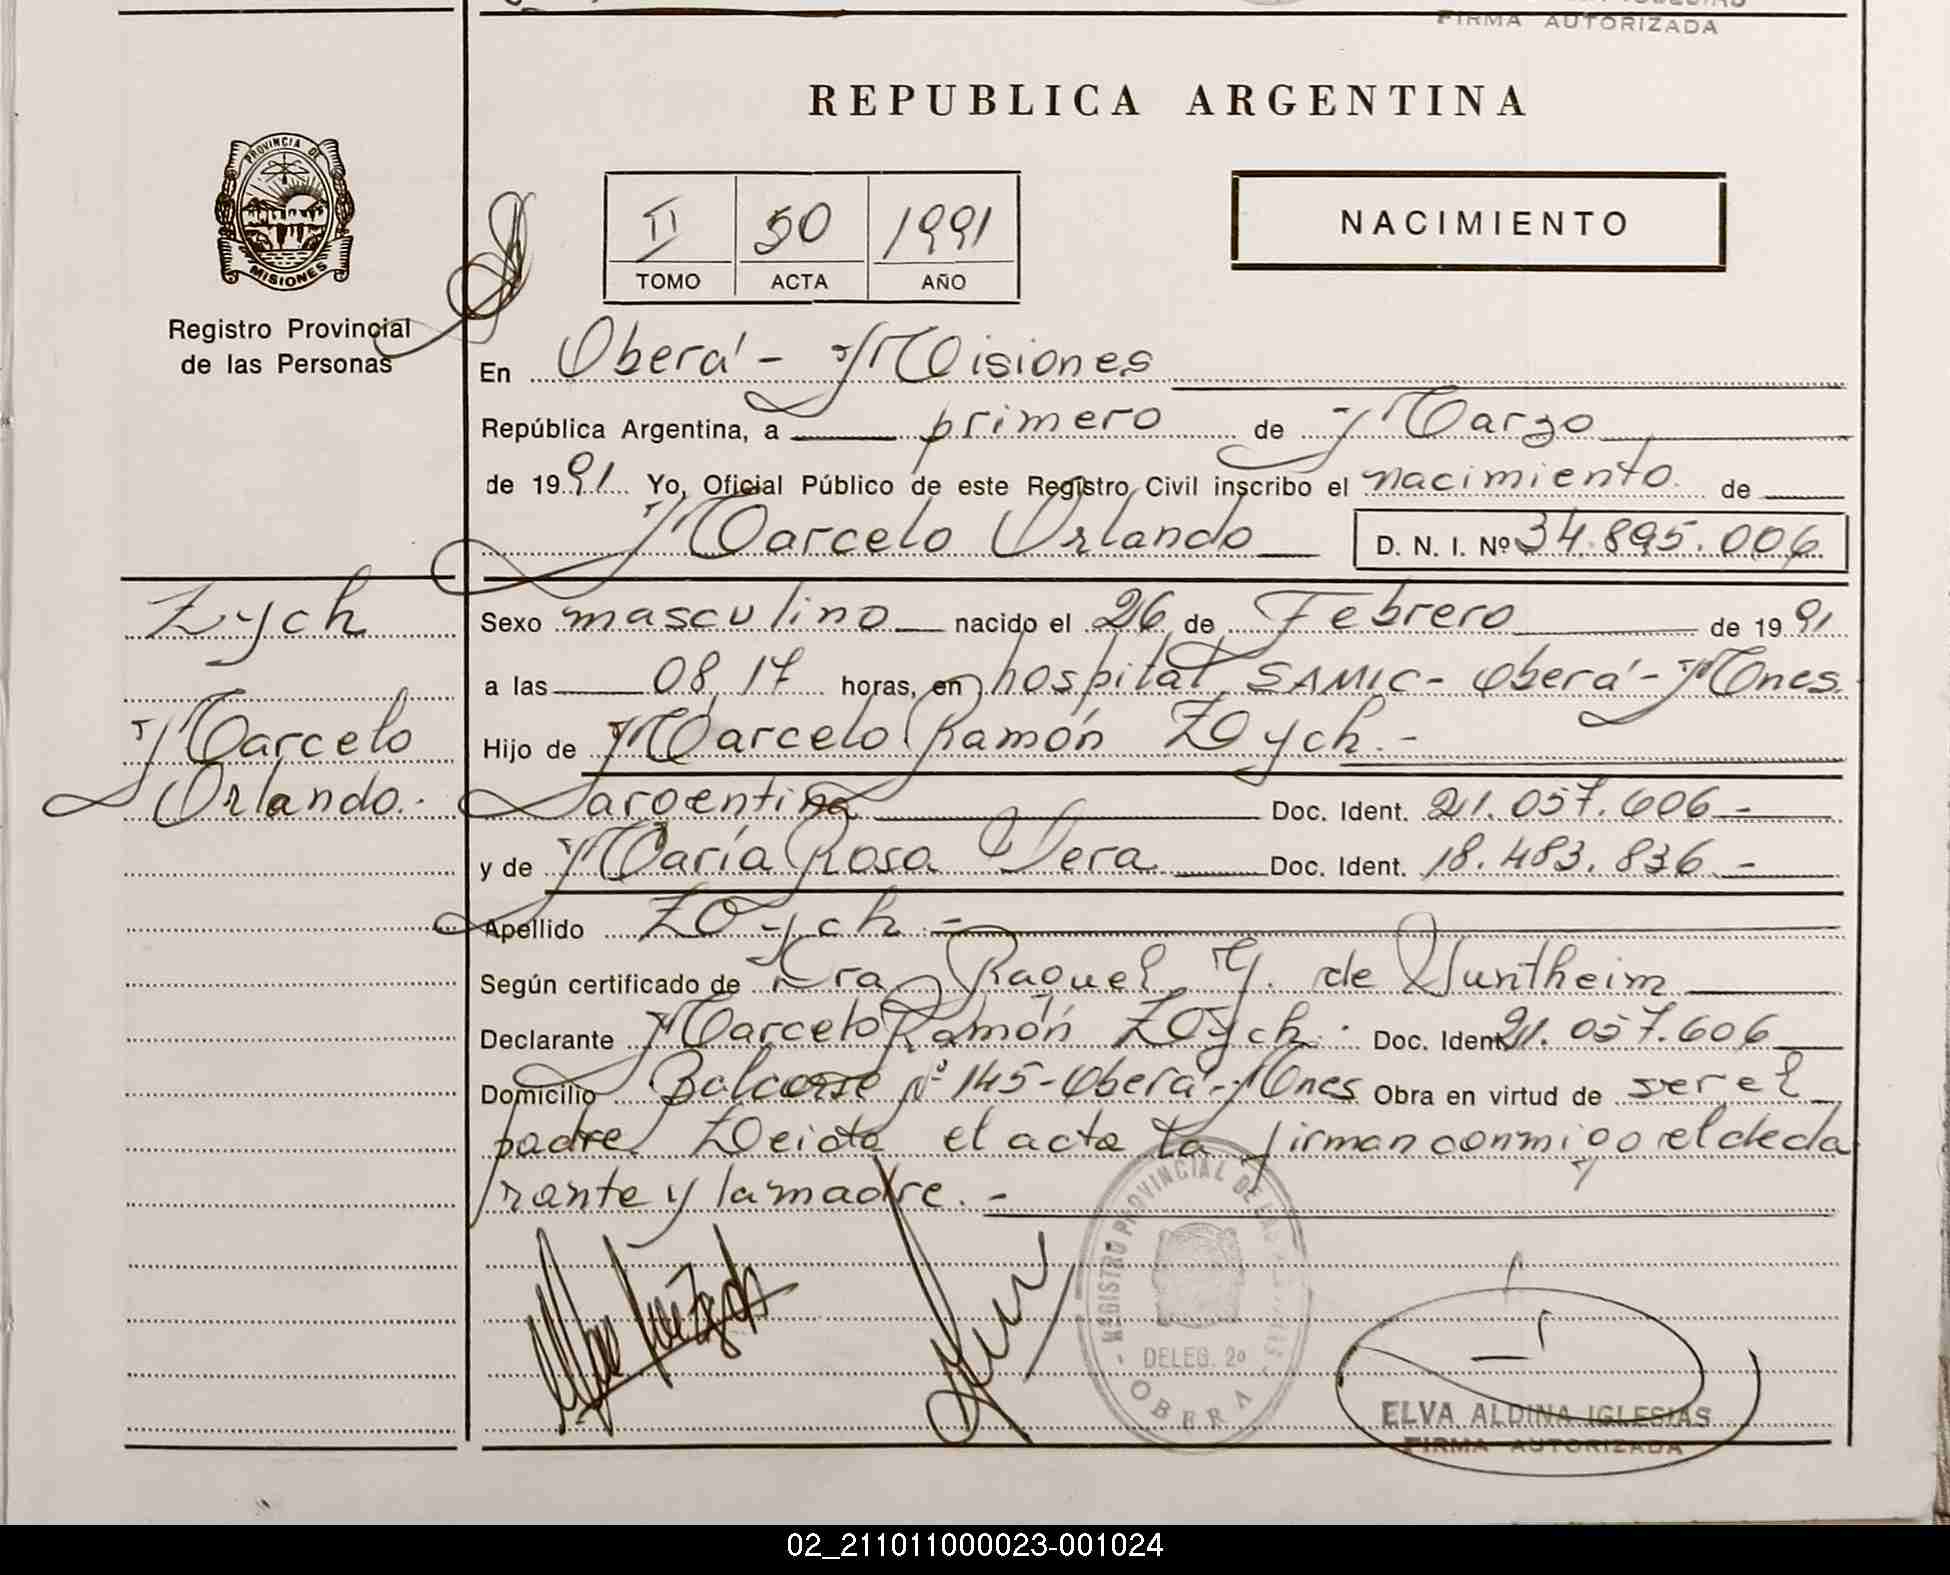 FIRMA AUTORIZADA
REPUBLICA ARGENTINA
PROVINCIA DE
MISIONES
Registro Provincial
de las Personas
II 50 1991
TOMO ACTA AÑO
NACIMIENTO
En Oberá - Misiones
República Argentina, a primero de Marzo
de 1991 Yo, Oficial Público de este Registro Civil inscribo el nacimiento de
Marcelo Orlando D. N. I. Nº 34.895.006
Zych
Marcelo
Orlando.-
Sexo masculino nacido el 26 de Febrero de 1991
a las 08,17 horas, en hospital SAMIC - Oberá - Mnes.
Hijo de Marcelo Ramón Zych.-
argentina Doc. Ident. 21.057.606 -
y de María Rosa Vera Doc. Ident. 18.483.836 -
Apellido Zych -
Según certificado de Dra. Raquel Y. de
Declarante Marcelo Ramón Zych. Doc. Ident. 21.057.606
Domicilio Balcarse Nº 145 - Oberá - Mnes Obra en virtud de ser el
padre Leida el acta la firman conmigo el decla
rante y la madre.-
REGISTRO PROVINCIAL DE LAS
DELEG. 2º
OBERA
ELVA ALDINA IGLESIAS
FIRMA AUTORIZADA
02_211011000023-001024